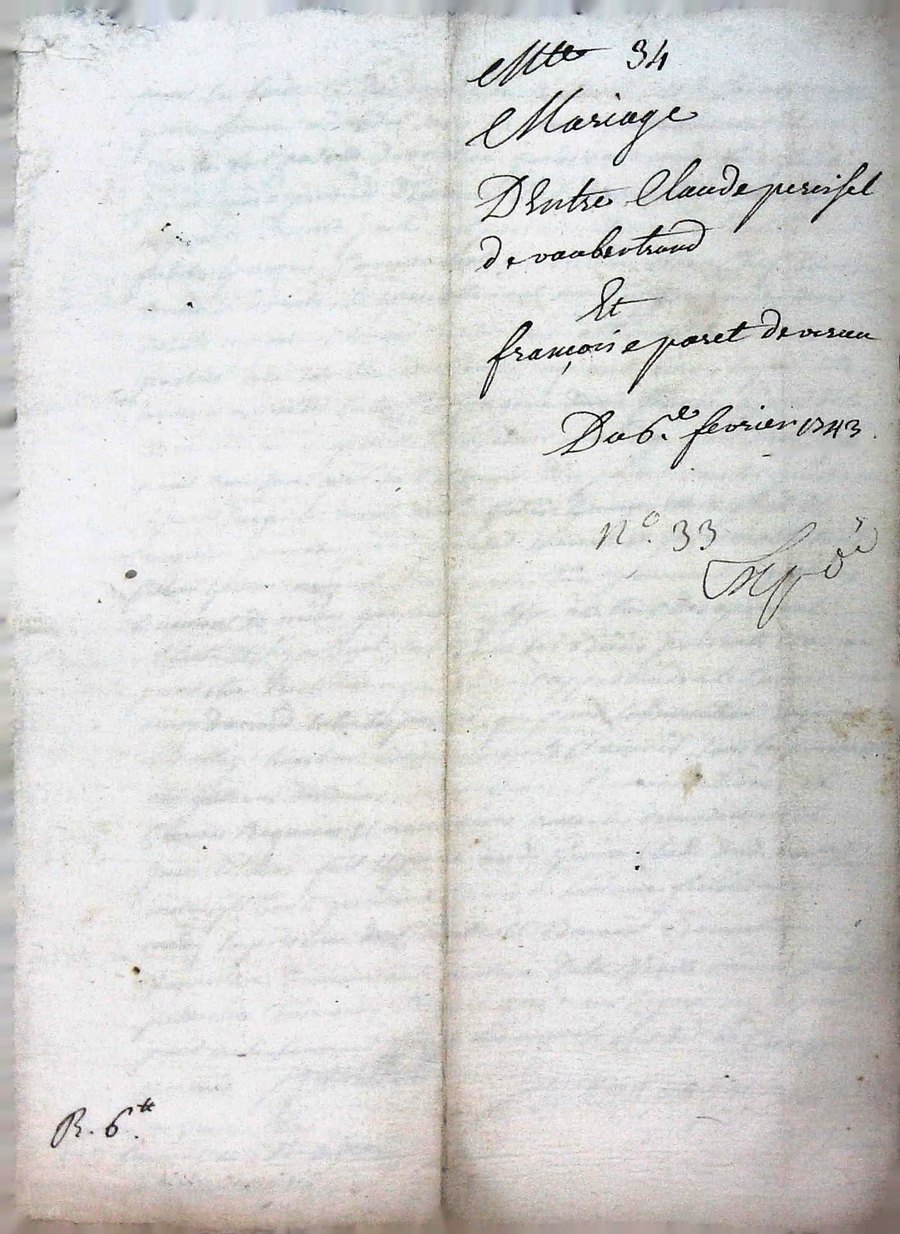 Mtte 34
Mariage
D'Entre Claude pereisel
de vaubertrand
Et
françoise paret de
Du 6.e fevrier 1743.
n.o 33
R. 6.tt